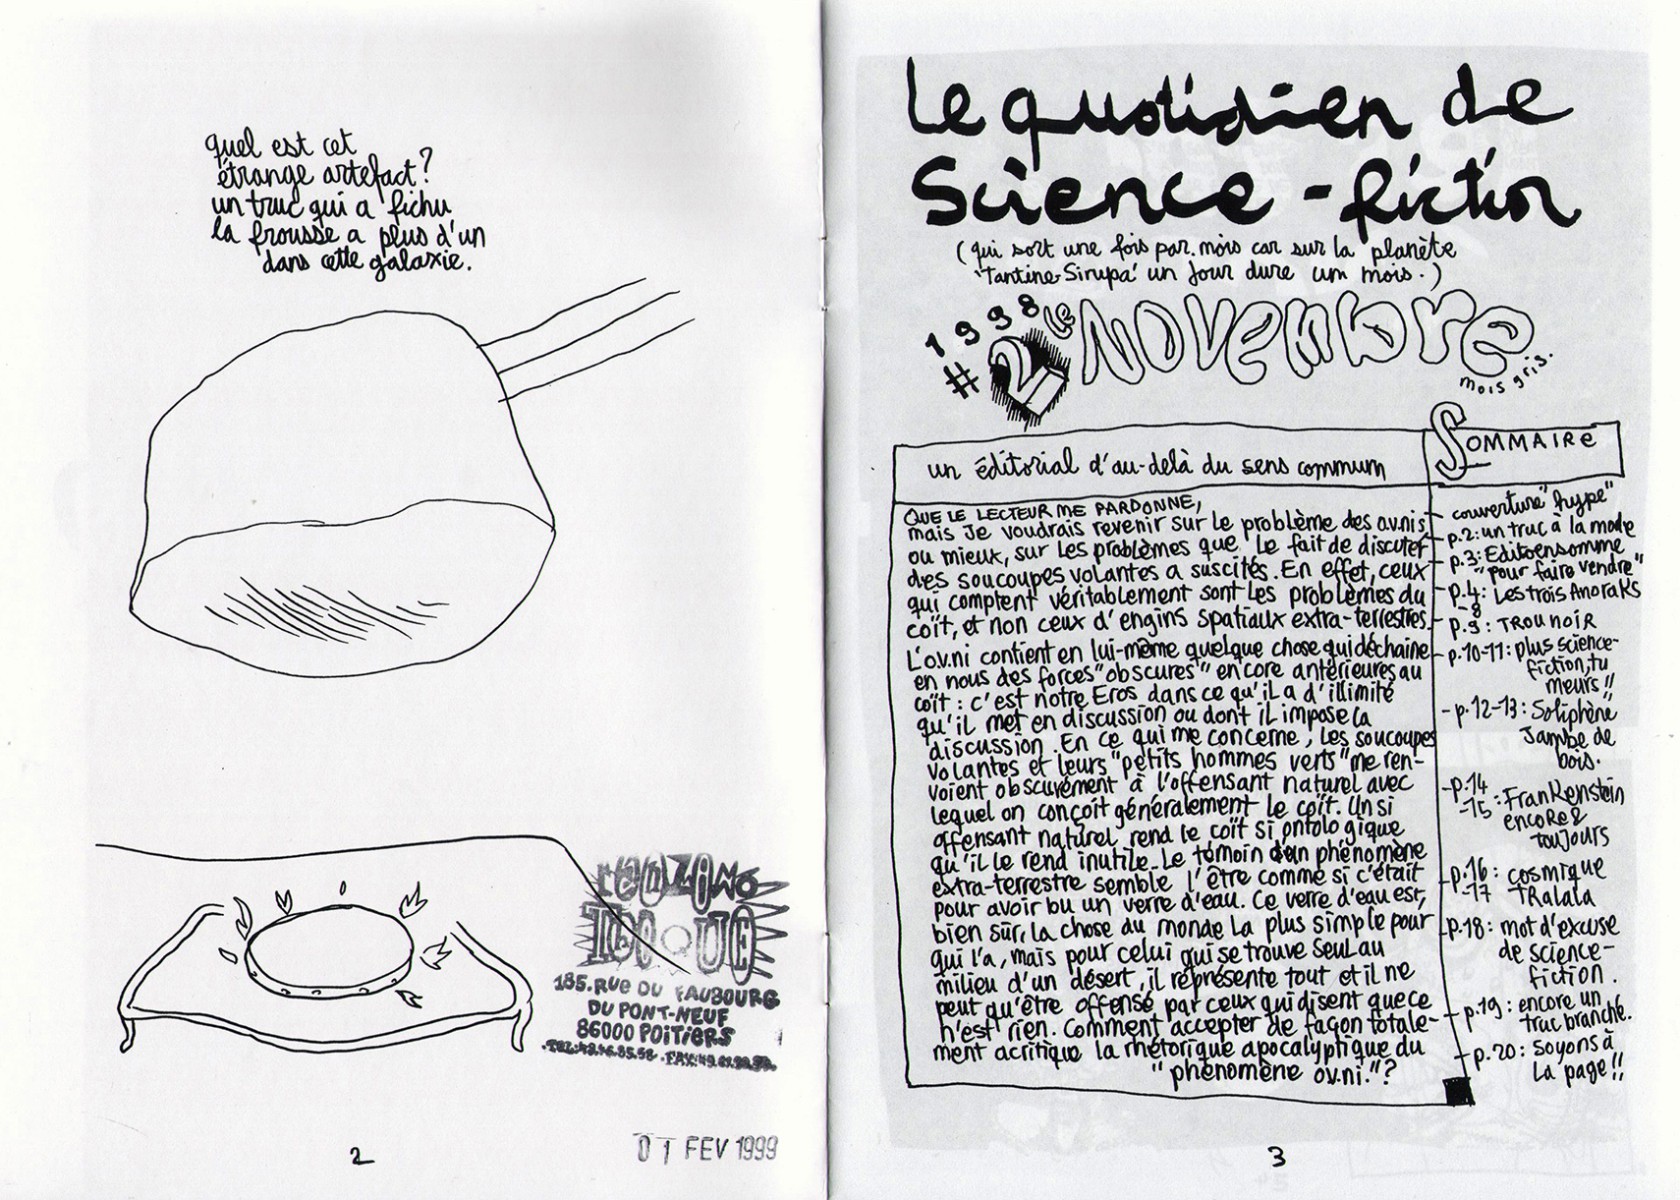 quel est cet
étrange artefact?
un truc qui a fichu
la frousse a plus d'un
dans cette galaxie.
FANZINO
THEQUE
185.RUE DU FAUBOURG
DU PONT-NEUF
86000 POITIERS
01 FEV 1999
2
Le quotidien de
Science-fiction
(qui sort une fois par mois car sur la planète
"Tantine-Sirupa" un jour dure um mois.)
1998
#2 le NOVEMBRE
mois gris.
un éditorial d'au-delà du sens commum
QUE LE LECTEUR ME PARDONNE,
mais Je voudrais revenir sur le problème des o.v.nis
ou mieux, sur les problèmes que le fait de discuter
des soucoupes volantes a suscités. En effet, ceux
qui comptent véritablement sont les problèmes du
coït, et non ceux d'engins spatiaux extra-terrestres.
L'o.v.ni contient en lui-même quelque chose qui déchaine
en nous des forces "obscures" encore antérieures au
coït : c'est notre Eros dans ce qu'il a d'illimité
qu'il met en discussion ou dont il impose la
discussion. En ce qui me concerne, les soucoupes
volantes et leurs "petits hommes verts" me ren-
voient obscurément à l'offensant naturel avec
lequel on conçoit généralement le coït. Un si
offensant naturel rend le coït si ontologique
qu'il le rend inutile. Le témoin d'un phénomène
extra-terrestre semble l'être comme si c'était
pour avoir bu un verre d'eau. Ce verre d'eau est,
bien sûr, la chose du monde la plus simple pour
qui l'a, mais pour celui qui se trouve seul au
milieu d'un désert, il représente tout et il ne
peut qu'être offensé par ceux qui disent que ce
n'est rien. Comment accepter de façon totale-
ment acritique la rhétorique apocalyptique du
"phénomène o.v.ni."?
SOMMAIRE
- couverture "hype"
- p.2: un truc à la mode
- p.3: Editoensomme
"pour faire vendre"
- p.4: Les trois Anoraks
-8
- p.9: TROU NOIR
- p.10-11: plus science-
fiction, tu
meurs!!
- p.12-13: Soliphène
Jambe de
bois.
- p.14
-15: Frankenstein
encore &
toujours
- p.16: cosmique
-17 TRalala
- p.18: mot d'excuse
de science-
fiction.
- p.19: encore un
truc branché.
- p.20: soyons à
la page!!
3